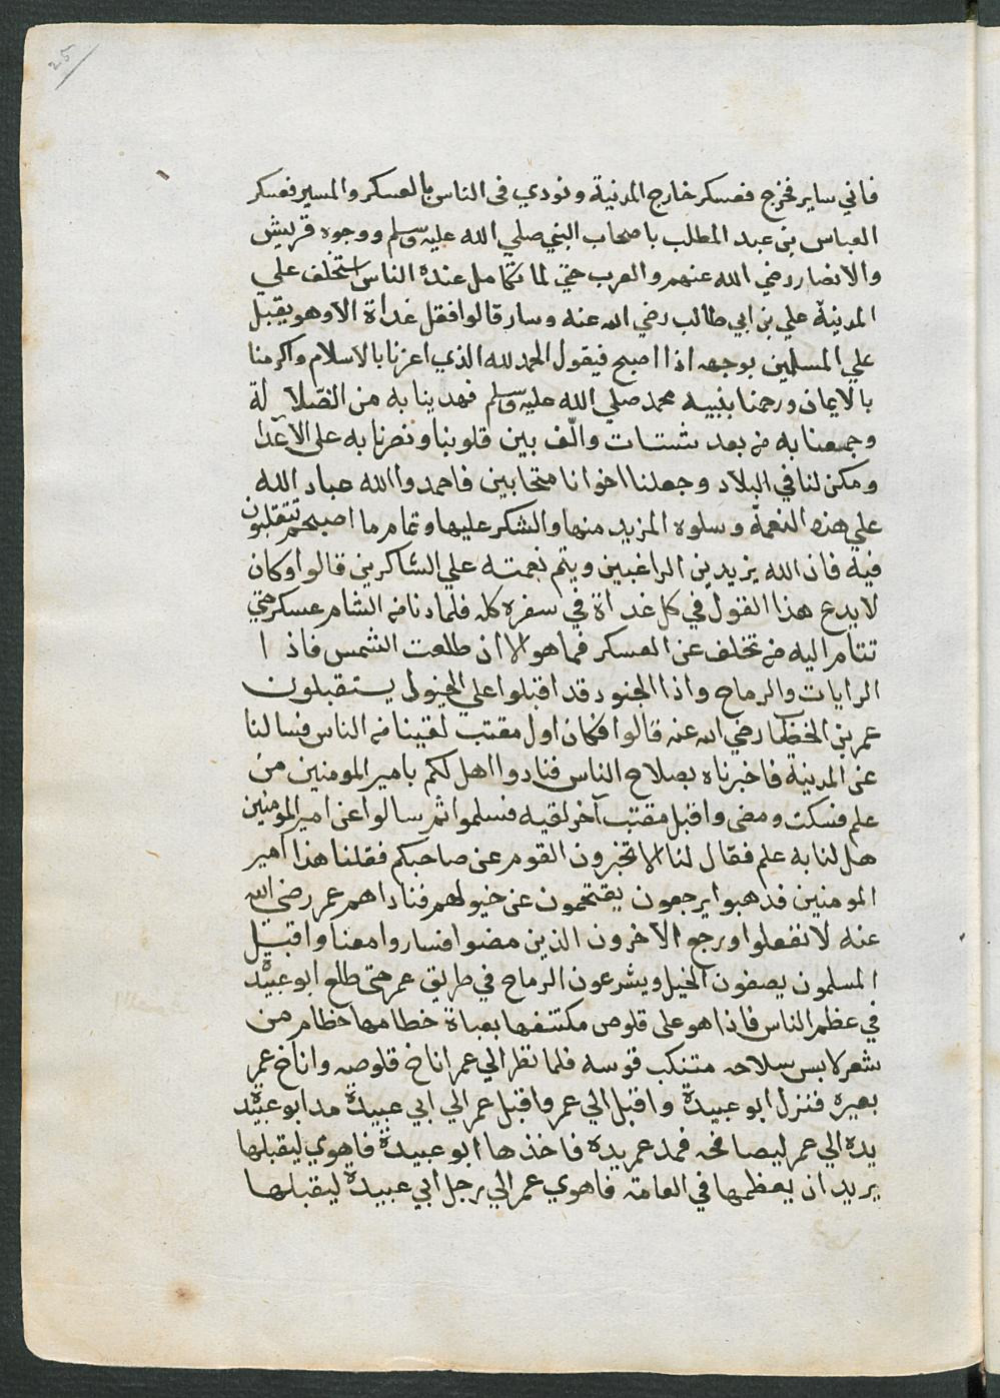 25
فاني ساير فخرج فعسكر خارج المدنية ونودي في الناس بالعسكر والمسير فعسكر
العباس بن عبد المطلب باصحاب النبي صلي الله عليه وسلم ووجوه قريش
والانصار رضي الله عنهم والعرب حتي لما تكامل عنده الناس استخلف علي
المدنية علي بن ابي طالب رضي الله عنه وسار قالوا فقل غداة الا وهو يقبل
علي المسلمين بوجهه اذا اصبح فيقول الحمد لله الذي اعزنا بالاسلام واكرمنا
بالايمان ورحمنا بنبيه محمد صلي الله عليه وسلم فهدينا به من الضلا لة
وجمعنا به من بعد شتات والّف بين قلوبنا ونصرنا به على الاعدا
ومكن لنا في البلاد وجعلنا اخوانا متحابين فاحمدوا الله عباد الله
علي هذه النعمة وسلوه المزيد منها والشكر عليها وتمام ما اصبحتم تتقلبون
فيه فان الله يزيد بن الراغبين ويتم نعمته علي الشاكرين قالوا وكان
لا يدع هذا القول في كل غداة في سفره كله فلما دنا من الشام عسكر حتي
تتام اليه من تخلف عن العسكر فما هو الا ان طلعت الشمس فاذ ا
الرايات والرماح واذا الجنود قد اقبلوا علي الخيول يستقبلون
عمر بن الخطاب رضي الله عنه قالوا فكان اول مقتب لقينا من الناس فسالنا
عن المدنية فاخبرناه بصلاح الناس فنادوا اهل لكم بامير المومنين من
علم فسكت ومضى واقبل مقتب آخر لقيه فسلموا ثم سالوا عن امير المومنين
هل لنا به علم فقال لنا الا تخبرون القوم عن صاحبكم فقلنا هذا امير
المومنين فذهبوا يرجعون يقتحمون عن خيولهم فناداهم عمر رضي الله
عنه لا تفعلوا ورجع الآخرون الذين مضوا فساروا معنا واقبل
المسلمون يصفون الخيل ويشرعون الرماح في طريق عمر حتى طلع ابو عبيدة
في عظم الناس فاذا هو على قلوص مكتنفها بعباة خطامها حظام من
شعر لابس سلاحه متنكب قوسه فلما نظر الي عمر اناخ قلوصه واناخ عمر
بعيره فنزل ابو عبيدة واقبل الي عمر واقبل عمر الي ابي عبيدة مد ابو عبيدة
يده الي عمر ليصافحه فمد عمر يده فاخذها ابو عبيدة فاهوي ليقبلها
يريد ان يعظمها في العامة فاهوي عمر الي رجل ابي عبيدة ليقبلها